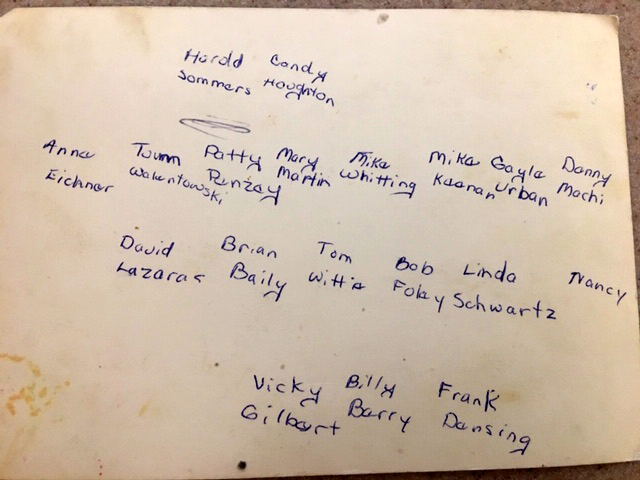 Harold Candy
Sommers Houghton
Anna Patty Mary Mike Mike Gayle Danny
Eichner Walentowski Panzay Martin Whitting Keenan Urban Machi
David Brian Tom Bob Linda Nancy
Lazaras Baily Wittie Foley Schwartz
Vicky Billy Frank
Gilbert Barry Dansing